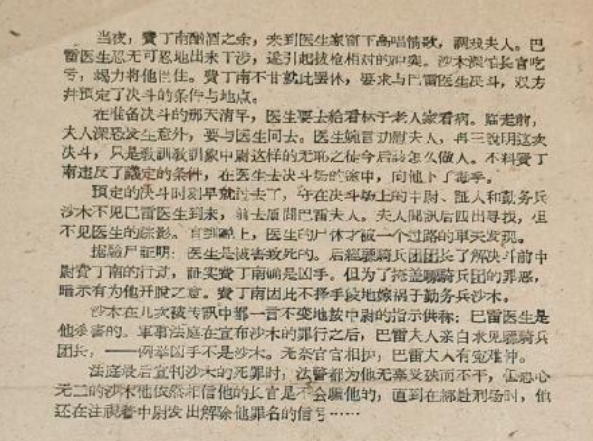 当夜，費丁南酗酒之余，来到医生家窗下高唱情歌，調戏夫人。巴
雷医生忍无可忍地出来干涉，遂引起拔枪相对的冲突。沙木深怕长官吃
亏，竭力将他拦住。費丁南不甘就此罢休，要求与巴雷医生决斗，双方
并预定了决斗的条件与地点。
在准备决斗的那天清早，医生要去給看林子老人家看病。临走前，
夫人深恐发生意外，要与医生同去。医生婉言劝慰夫人，再三說明这次
决斗，只是教訓教訓象中尉这样的无耻之徒今后該怎么做人。不料費丁
南违反了議定的条件，在医生去决斗场的途中，向他下了毒手。
預定的决斗时刻早就过去了，守在决斗场上的中尉、証人和勤务兵
沙木不見巴雷医生到来，前去質問巴雷夫人。夫人聞訊后四出寻找，但
不见医生的踪影。直到晚上，医生的尸体才被一个过路的車夫发現。
据驗尸証明：医生是被害致死的。后經驃騎兵团团长了解决斗前中
尉費丁南的行动，証实費丁南确是凶手。但为了掩盖驃騎兵团的罪惡，
暗示有为他开脫之意。費丁南因此不择手段地嫁祸于勤务兵沙木。
沙木在几次被传訊中都一言不变地按中尉的指示供称：巴雷医生是
他杀害的。軍事法庭在宣布沙木的罪行之后，巴雷夫人亲自求見驃騎兵
团长，——例举凶手不是沙木。无奈官官相护，巴雷夫人有冤难伸。
法庭最后宣判沙木的死罪时，法警都为他无辜受殃而不平，但忠心
无二的沙木他依然相信他的长官是不会騙他的，直到在綁赴刑场时，他
还在注視着中尉发出解除他罪名的信号……